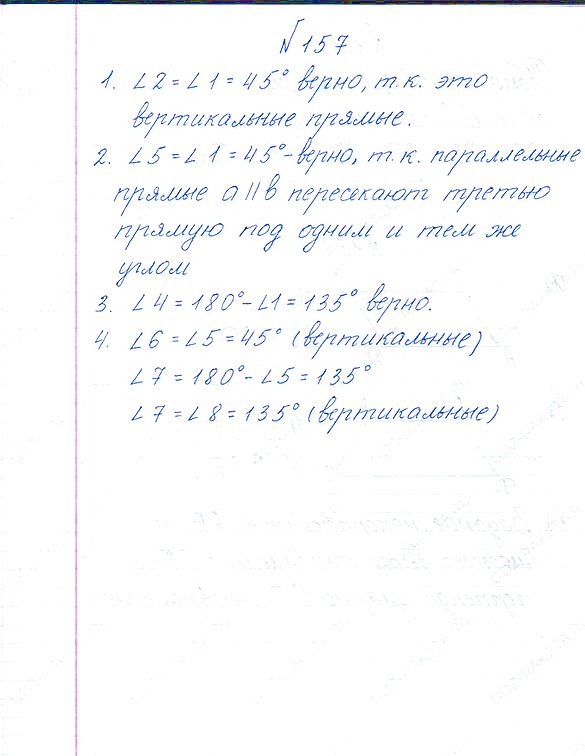 №157
1. ∠2 = ∠1 = 45° верно, т.к. это
вертикальные прямые.
2. ∠5 = ∠1 = 45° - верно, т.к. параллельные
прямые a || b пересекают третью
прямую под одним и тем же
углом
3. ∠4 = 180° - ∠1 = 135° верно.
4. ∠6 = ∠5 = 45° (вертикальные)
∠7 = 180° - ∠5 = 135°
∠7 = ∠8 = 135° (вертикальные)